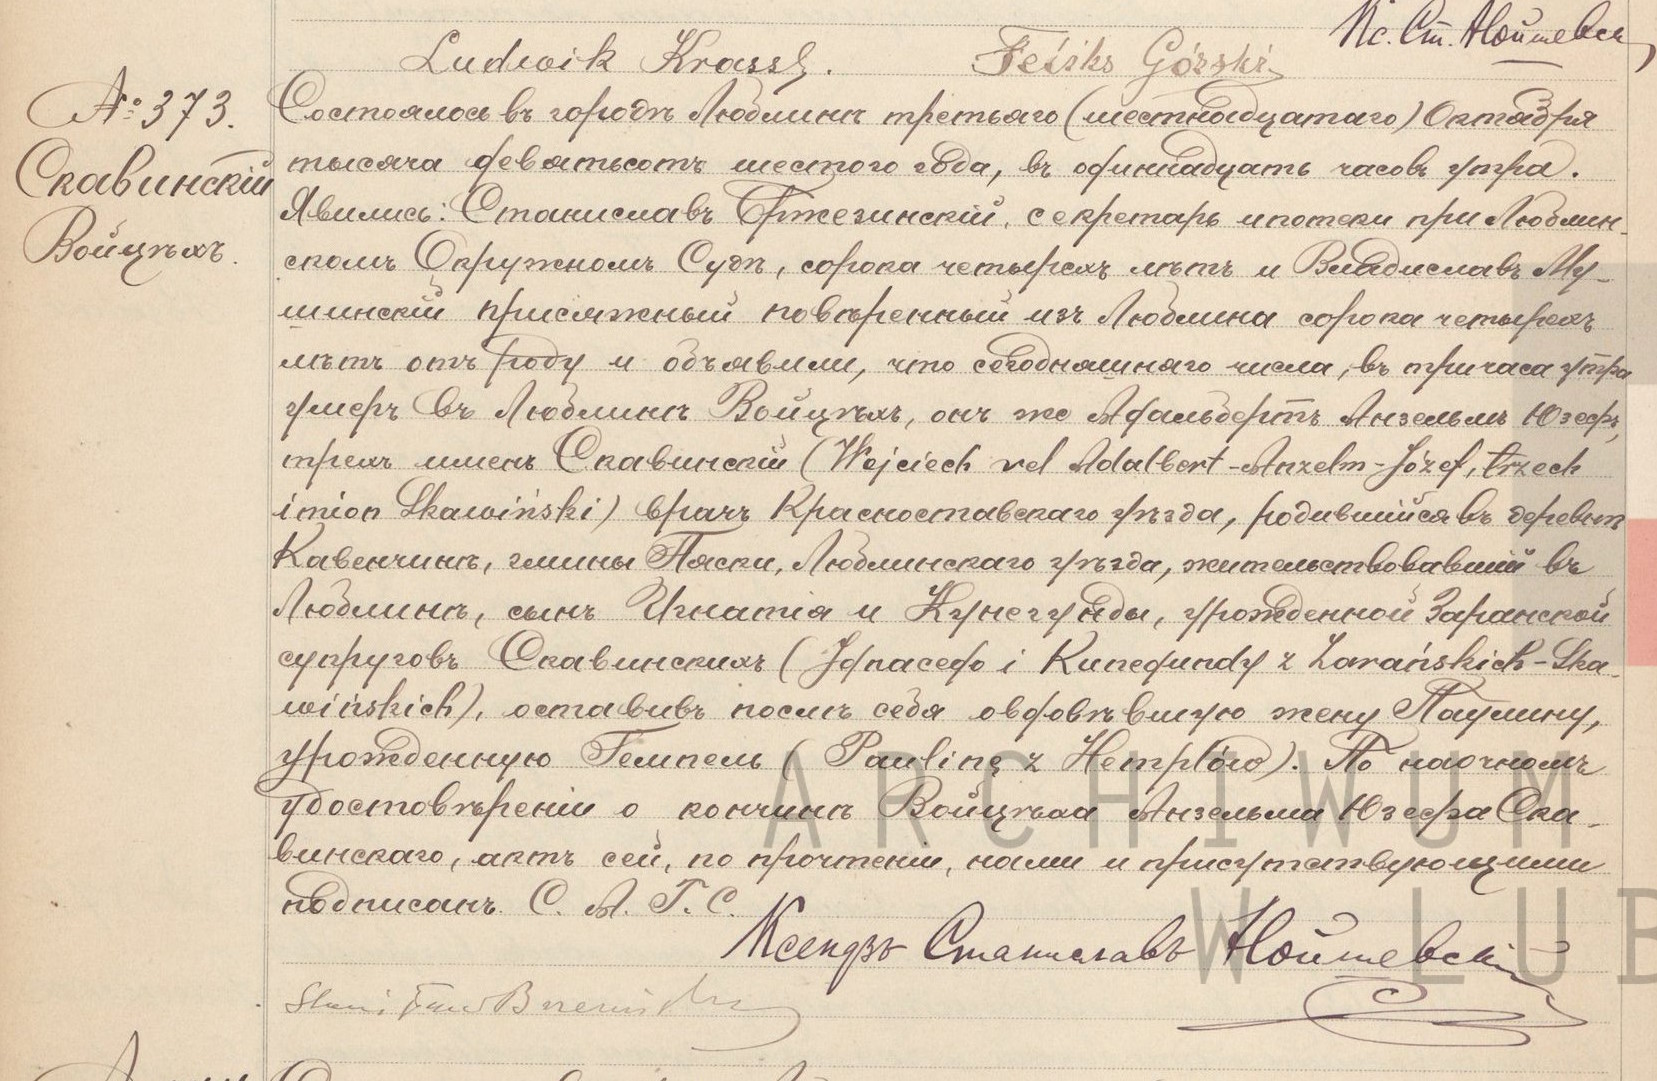 Кс. Ст. Нойшевск
Ludwik Krassy. Feliks Górski
№ 373.
Скавинскій
Войцѣхъ.
Состоялось въ городѣ Люблинѣ третьяго (шестнадцатаго) Октября
тысяча девятьсотъ шестого года, въ одиннадцать часовъ утра.
Явились: Станиславъ Бржезинскій, секретарь ипотеки при Люблин-
скомъ Окружномъ Судѣ, сорока четырехъ лѣтъ и Владиславъ Му-
шинскій присяжный повѣренный изъ Люблина сорока четырехъ
лѣтъ отъ роду и объявили, что сегодняшняго числа, въ три часа утра
умеръ въ Люблинѣ Войцѣхъ, онъ же Адальбертъ Анзельмъ Юзефъ,
трехъ именъ Скавинскій (Wojciech vel Adalbert-Anzelm-Józef, trzech
imion Skawiński) врачъ Красноставскаго уѣзда, родившійся въ деревнѣ
Кавенчинѣ, гмины Пяски, Люблинскаго уѣзда, жительствовавшій въ
Люблинѣ, сынъ Игнатія и Кунегунды, урожденной Заранской
супруговъ Скавинскихъ (Ignacego i Kunegundy z Zarańskich-Ska-
wińskich), оставивъ послѣ себя овдовѣвшую жену Паулину,
урожденную Гемпель (Paulinę z Hemplów). По наочномъ
удостовѣреніи о кончинѣ Войцѣха Анзельма Юзефа Ска-
винскаго, актъ сей, по прочтеніи, нами и присутствующими
подписанъ. С. А. Г. С.
Ксендзъ Станиславъ Нойшевскій
Stanisław Brzeziński
ARCHIWUM
W LUB